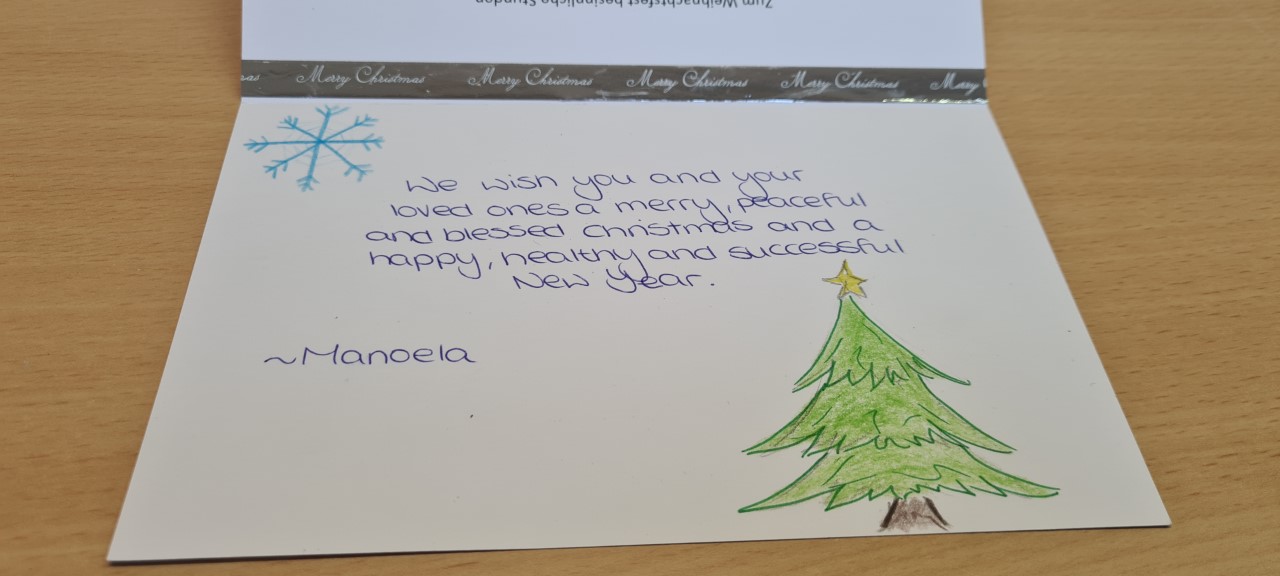 Zum Weihnachtsfest besinnliche Stunden
Merry Christmas Merry Christmas Merry Christmas Merry Christmas Merry
We wish you and your
loved ones a merry, peaceful
and blessed christmas and a
happy, healthy and successful
New Year.
~Manoela